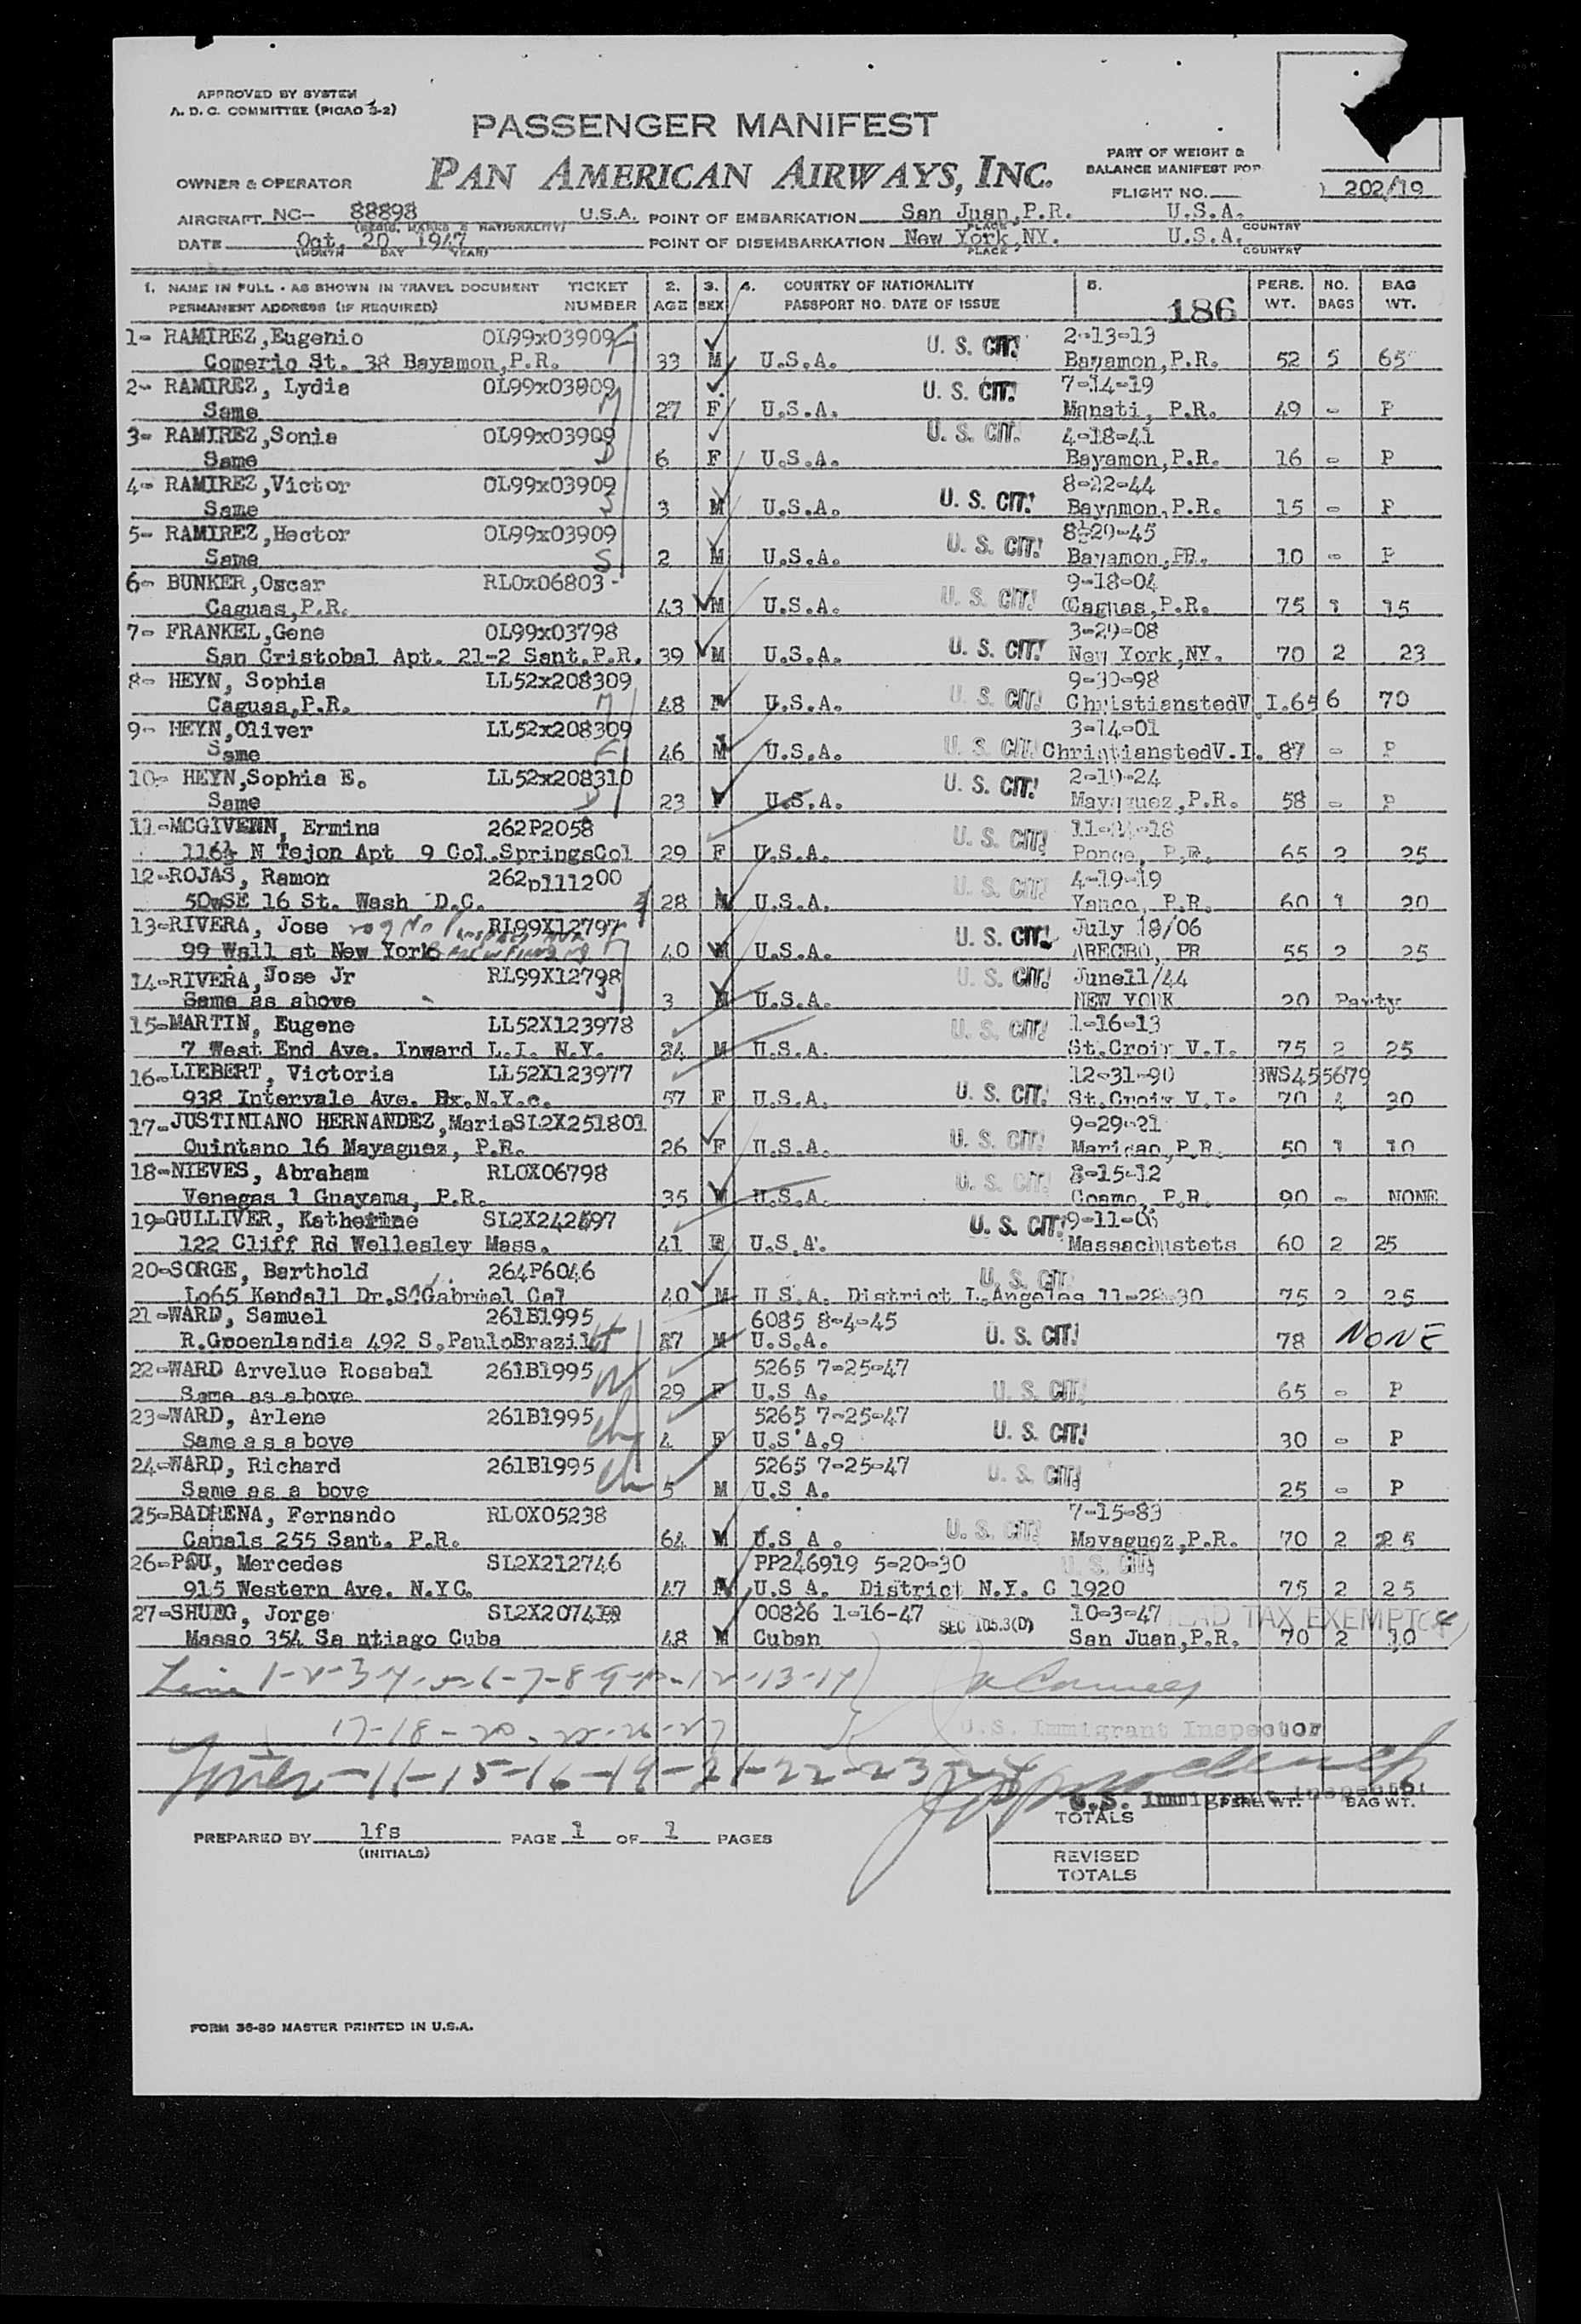 APPROVED BY SYSTEM
A. D. C. COMMITTEE (PICAO 3-2)
PASSENGER MANIFEST
PAN AMERICAN AIRWAYS, INC.
PART OF WEIGHT &
BALANCE MANIFEST FOR
OWNER & OPERATOR
FLIGHT NO. 202/19
AIRCRAFT NC- 88898 U.S.A. POINT OF EMBARKATION San Juan,P.R. U.S.A.
(REGIS. MARKS & NATIONALITY) PLACE COUNTRY
DATE Oct. 20 1947 POINT OF DISEMBARKATION New York,NY. U.S.A.
(MONTH DAY YEAR) PLACE COUNTRY
1. NAME IN FULL - AS SHOWN IN TRAVEL DOCUMENT TICKET 2. 3. 4. COUNTRY OF NATIONALITY 5. PERS. NO. BAG
PERMANENT ADDRESS (IF REQUIRED) NUMBER AGE SEX PASSPORT NO. DATE OF ISSUE 186 WT. BAGS WT.
1- RAMIREZ,Eugenio OL99x03909 U. S. CIT! 2-13-13
Comerio St. 38 Bayamon,P.R. 33 M U.S.A. Bayamon,P.R. 52 5 65
2- RAMIREZ, Lydia OL99x03909 M U. S. CIT! 7-14-19
Same 27 F U.S.A. Manati, P.R. 49 - P
3- RAMIREZ,Sonia OL99x03909 D U. S. CIT. 4-18-41
Same 6 F U.S.A. Bayamon,P.R. 16 - P
4- RAMIREZ,Victor OL99x03909 S U. S. CIT! 8-22-44
Same 3 M U.S.A. Bayamon,P.R. 15 - P
5- RAMIREZ,Hector OL99x03909 S U. S. CIT! 8-29-45
Same 2 M U.S.A. Bayamon,PR. 10 - P
6- BUNKER,Oscar RLOx06803 U. S. CIT! 9-18-04
Caguas,P.R. 43 M U.S.A. Caguas,P.R. 75 1 15
7- FRANKEL,Gene OL99x03798 U. S. CIT! 3-29-08
San Cristobal Apt. 21-2 Sant.P.R. 39 M U.S.A. New York,NY. 70 2 23
8- HEYN, Sophia LL52x208309 M U. S. CIT! 9-30-98
Caguas,P.R. 48 F U.S.A. ChristianstedV.I. 65 6 70
9- HEYN,Oliver LL52x208309 U. S. CIT! 3-14-01
Same 46 M U.S.A. ChristianstedV.I. 87 - P
10- HEYN,Sophia E. LL52x208310 D U. S. CIT! 2-19-24
Same 23 F U.S.A. Mayaguez,P.R. 58 - P
11-MCGIVERN, Ermina 262P2058 U. S. CIT!
116½ N Tejon Apt 9 Col.SpringsCol 29 F U.S.A. Ponce, P.R. 65 2 25
12-ROJAS, Ramon 262p111200 U. S. CIT! 4-19-19
SE 16 St. Wash D.C. 28 M U.S.A. Yauco, P.R. 60 1 20
13-RIVERA, Jose RL99X12797 U. S. CIT! July 18/06
99 Wall st New York 40 M U.S.A. ARECBO, PR 55 2 25
14-RIVERA,Jose Jr RL99X12798 S U. S. CIT! June11/44
Same as above 3 M U.S.A. NEW YORK 20 Party
15-MARTIN, Eugene LL52X123978 U. S. CIT! 1-16-13
7 West End Ave. Inward L.I. N.Y. 34 M U.S.A. St.Croix V.I. 75 2 25
16-LIEBERT, Victoria LL52X123977 U. S. CIT! 12-31-90 BWS455679
938 Intervale Ave. Bx.N.Y.c. 57 F U.S.A. St.Croix V.I. 70 4 30
17-JUSTINIANO HERNANDEZ,MariaSL2X251801 U. S. CIT! 9-29-21
Quintano 16 Mayaguez, P.R. 26 F U.S.A. Maricao,P.R. 50 1 10
18-NIEVES, Abraham RLOX06798 U. S. CIT! 8-15-12
Venegas 1 Guayama, P.R. 35 M U.S.A. Coamo, P.R. 90 - NONE
19-GULLIVER, Katherine SL2X242697 U. S. CIT! 9-11-06
122 Cliff Rd Wellesley Mass. 41 F U.S.A. Massachustets 60 2 25
20-SORGE, Barthold 264P6046 U. S. CIT!
Lo65 Kendall Dr.S.Gabriel Cal 40 M U.S.A. District L.Angeles 11-28-30 75 2 25
21-WARD, Samuel 261B1995 6085 8-4-45
R.Groenlandia 492 S.PauloBrazil 37 M U.S.A. U. S. CIT! 78 NONE
22-WARD Arvelue Rosabal 261B1995 W 5265 7-25-47
Same as above 29 F U.S A. U. S. CIT! 65 - P
23-WARD, Arlene 261B1995 ch 5265 7-25-47
Same a s a bove 4 F U.S A.9 U. S. CIT! 30 - P
24-WARD, Richard 261B1995 ch 5265 7-25-47
Same as a bove 5 M U.S A. U. S. CIT! 25 - P
25-BADRENA, Fernando RLOX05238 7-15-83
Canals 255 Sant. P.R. 64 M U.S A . U. S. CIT! Mayaguez,P.R. 70 2 25
26-POU, Mercedes SL2X212746 PP246919 5-20-30 U. S. CIT!
915 Western Ave. N.YC. 47 F U.S A. District N.Y. C 1920 75 2 25
27-SHUEG, Jorge SL2X2074 00826 1-16-47 SEC 105.3(D) 10-3-47 HEAD TAX EXEMPT
Masso 354 Sa ntiago Cuba 48 M Cuban San Juan,P.R. 70 2 10
Line 1-2-3-4-5-6-7-8-9-10-12-13-14
17-18-20-25-26-27 U.S. Immigrant Inspector
-11-15-16-19-21-22-23-24
U.S. Immigrant Inspector
TOTALS PERS. WT. BAG WT.
PREPARED BY lfs PAGE 1 OF 1 PAGES
(INITIALS)
REVISED
TOTALS
FORM 36-89 MASTER PRINTED IN U.S.A.